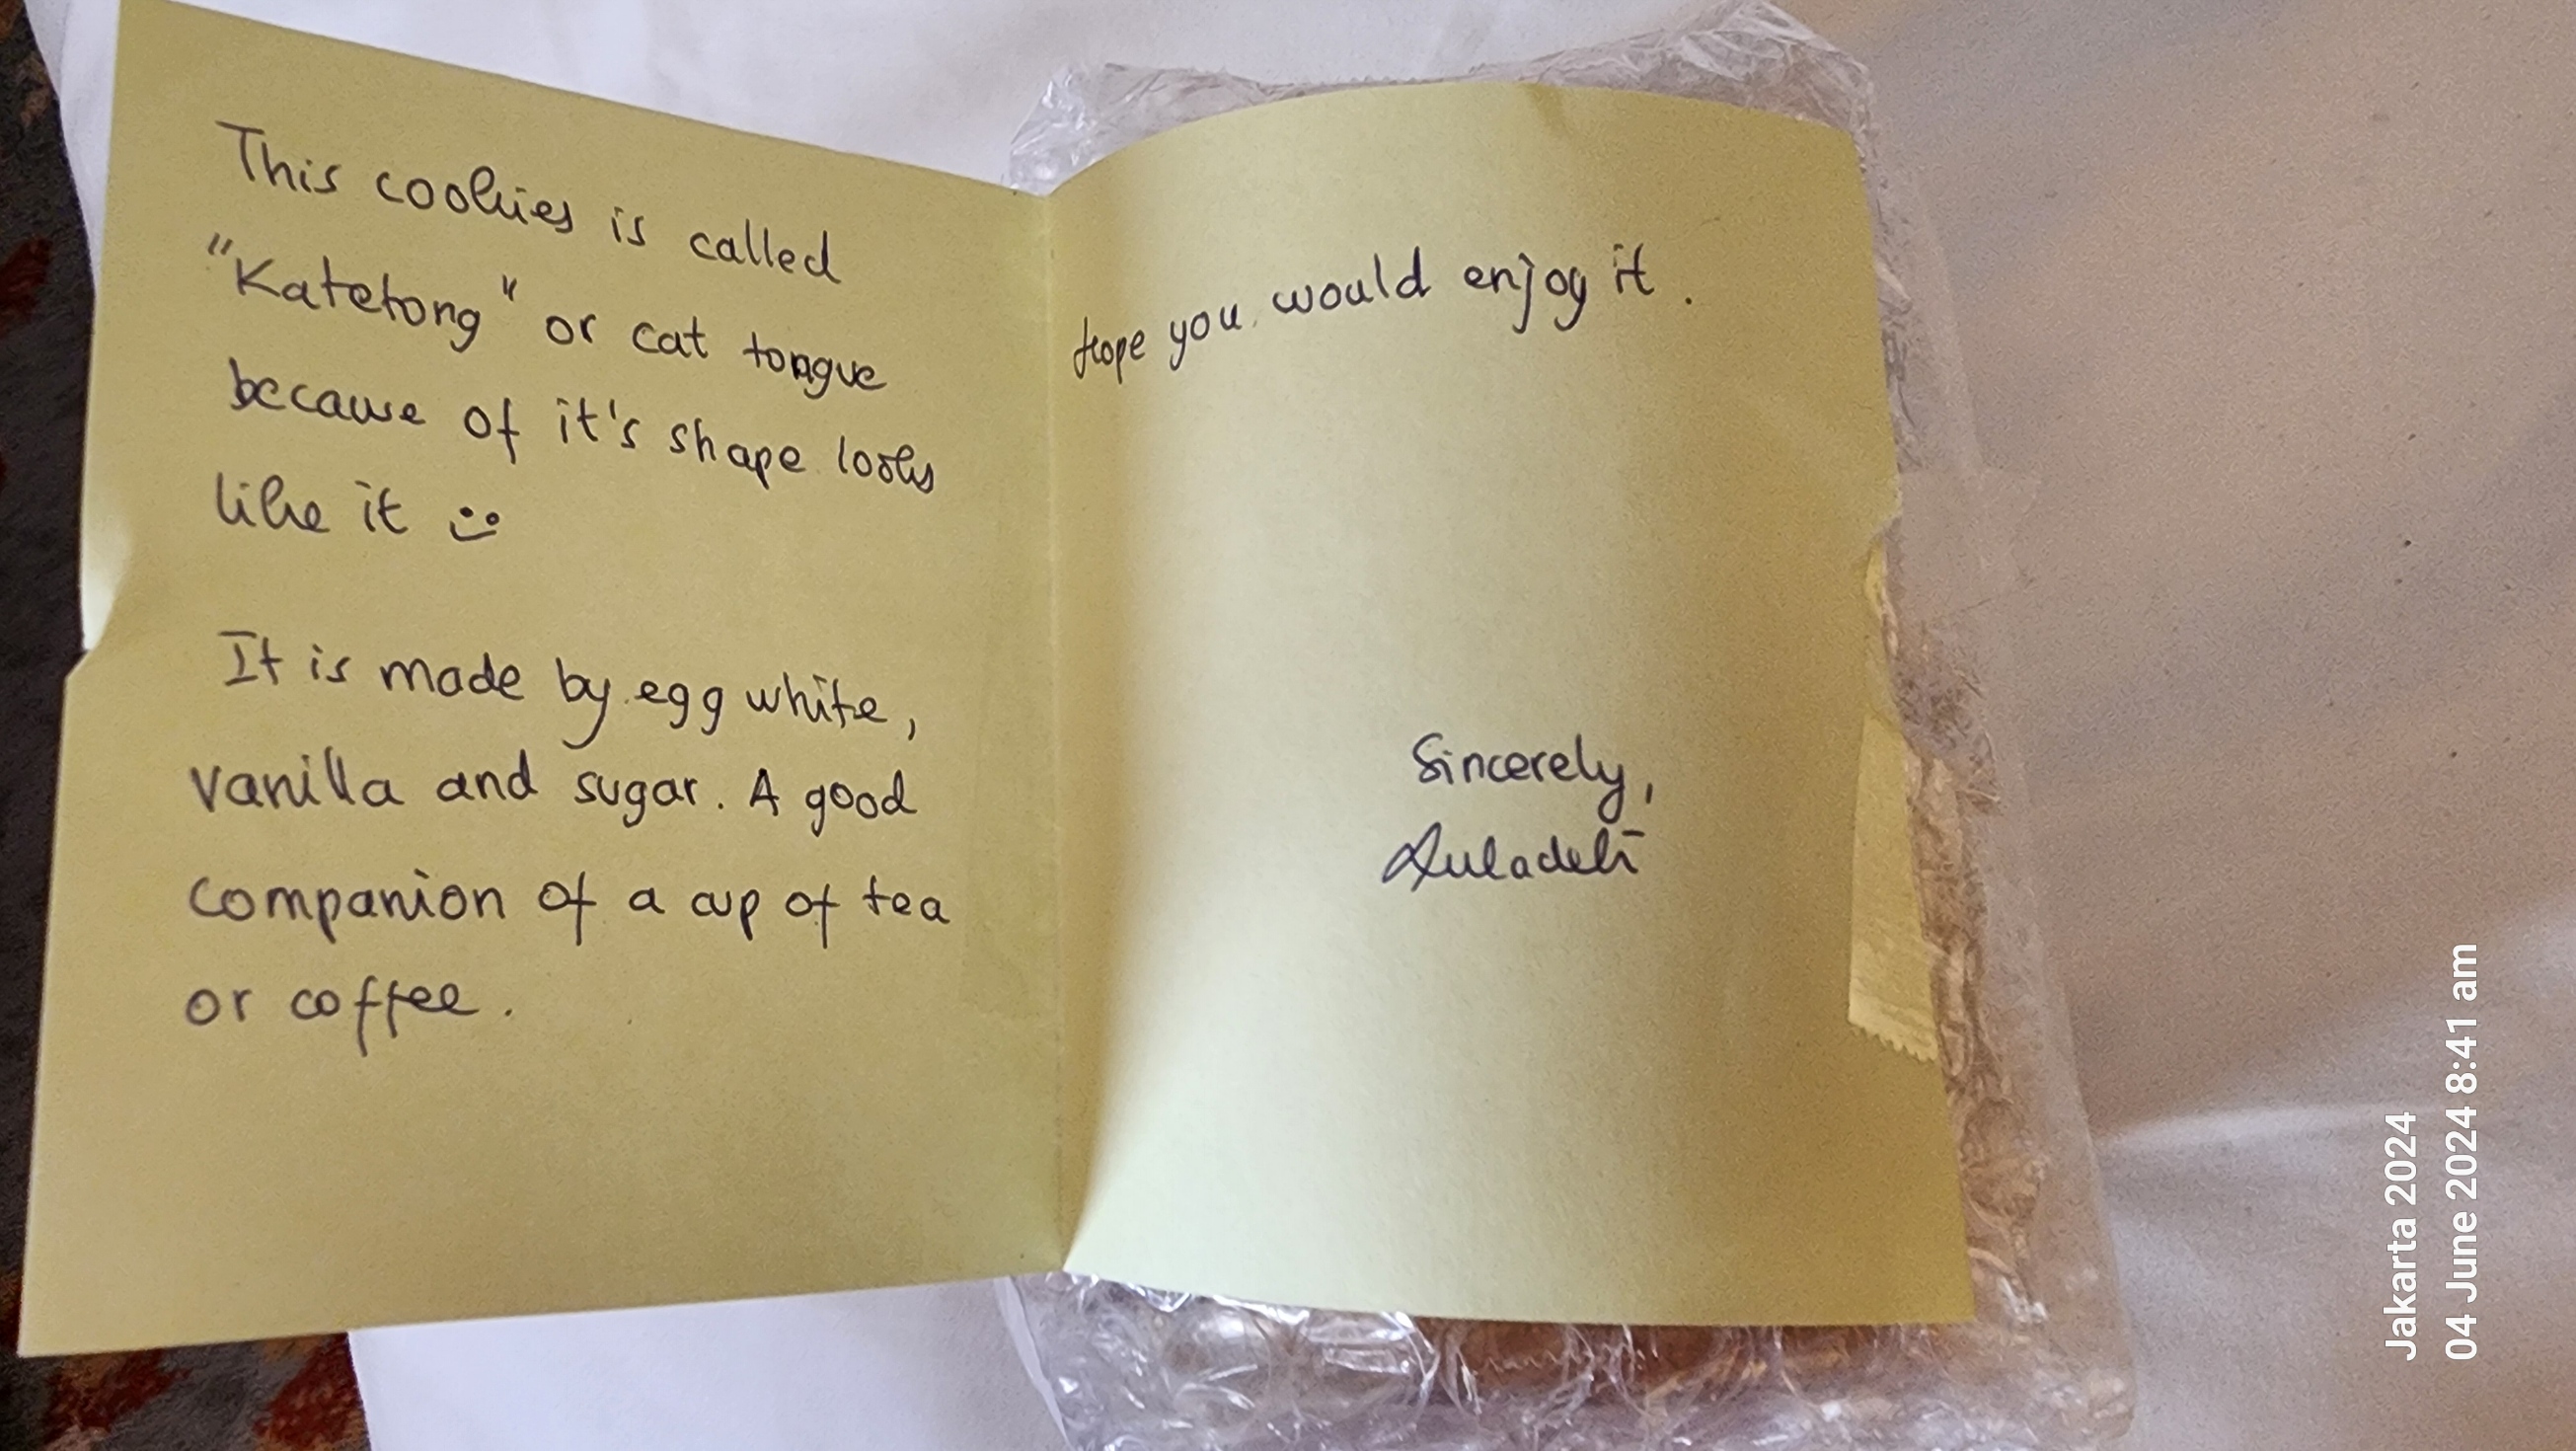 This cookies is called
"Katetong" or cat tongue
because of it's shape looks
like it
It is made by egg white,
vanilla and sugar. A good
companion of a cup of tea
or coffee.
Hope you would enjoy it.
Sincerely,
Auladeli
Jakarta 2024
04 June 2024 8:41 am